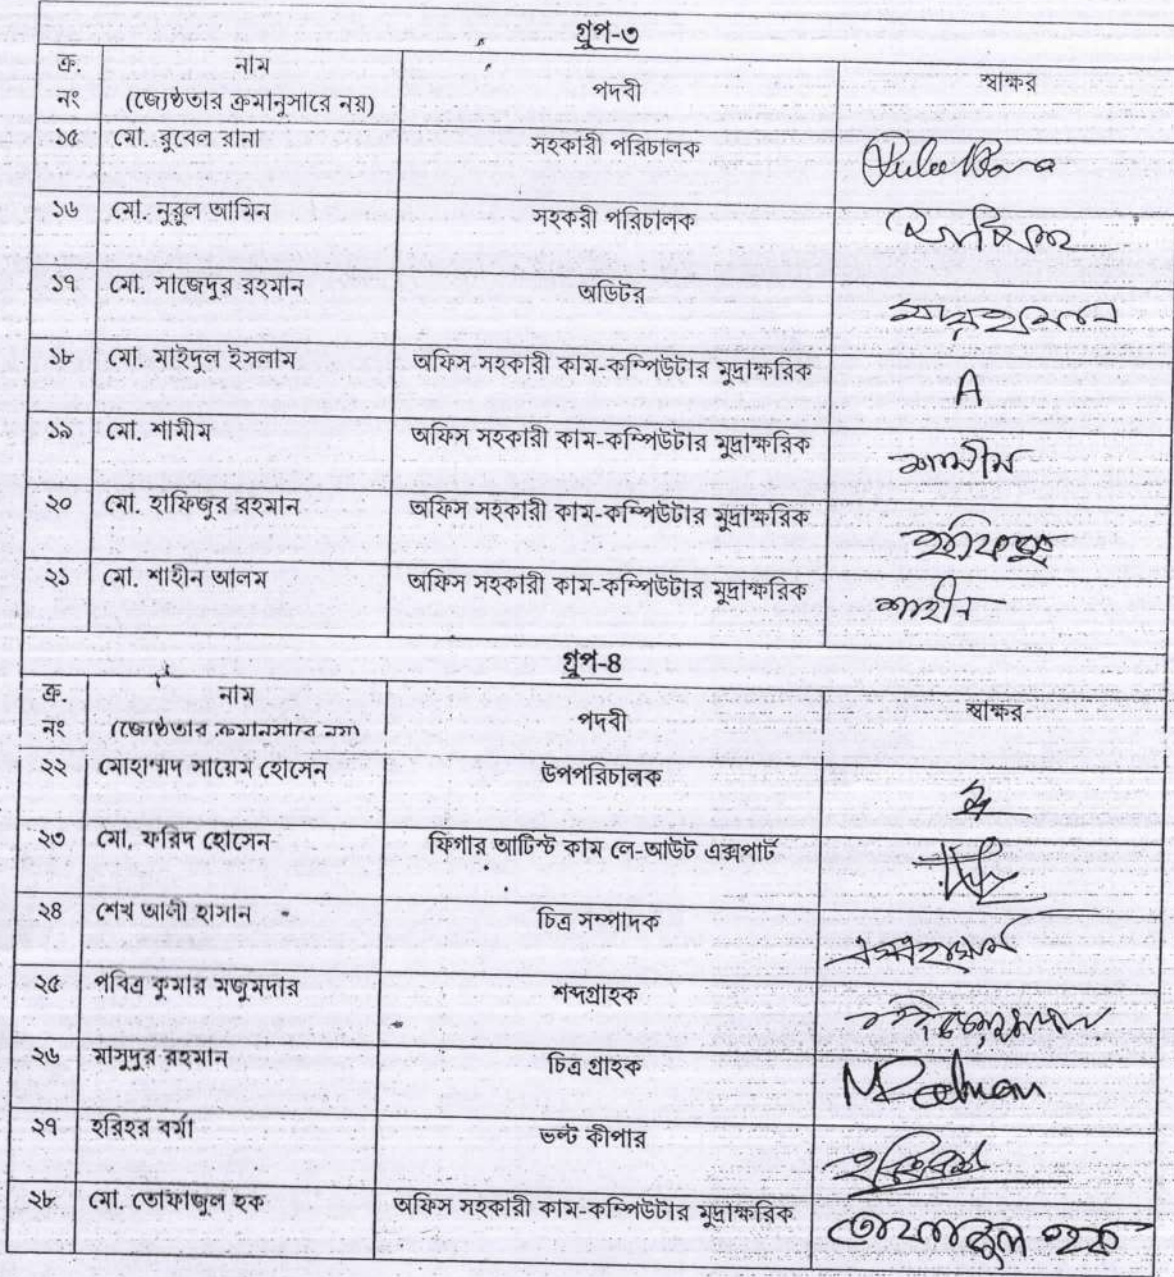 গ্রুপ-৩
ক্র. নাম পদবী স্বাক্ষর
নং (জ্যেষ্ঠতার ক্রমানুসারে নয়)
১৫ মো. রুবেল রানা সহকারী পরিচালক
১৬ মো. নুরুল আমিন সহকরী পরিচালক
১৭ মো. সাজেদুর রহমান অডিটর
১৮ মো. মাইদুল ইসলাম অফিস সহকারী কাম-কম্পিউটার মুদ্রাক্ষরিক A
১৯ মো. শামীম অফিস সহকারী কাম-কম্পিউটার মুদ্রাক্ষরিক শামীম
২০ মো. হাফিজুর রহমান অফিস সহকারী কাম-কম্পিউটার মুদ্রাক্ষরিক
২১ মো. শাহীন আলম অফিস সহকারী কাম-কম্পিউটার মুদ্রাক্ষরিক শাহীন
গ্রুপ-৪
ক্র. নাম পদবী স্বাক্ষর
নং (জ্যেষ্ঠতার ক্রমানুসারে নয়)
২২ মোহাম্মদ সায়েম হোসেন উপপরিচালক
২৩ মো. ফরিদ হোসেন ফিগার আটিস্ট কাম লে-আউট এক্সপার্ট
২৪ শেখ আলী হাসান চিত্র সম্পাদক
২৫ পবিত্র কুমার মজুমদার শব্দগ্রাহক
২৬ মাসুদুর রহমান চিত্র গ্রাহক
২৭ হরিহর বর্মা ভল্ট কীপার
২৮ মো. তোফাজুল হক অফিস সহকারী কাম-কম্পিউটার মুদ্রাক্ষরিক